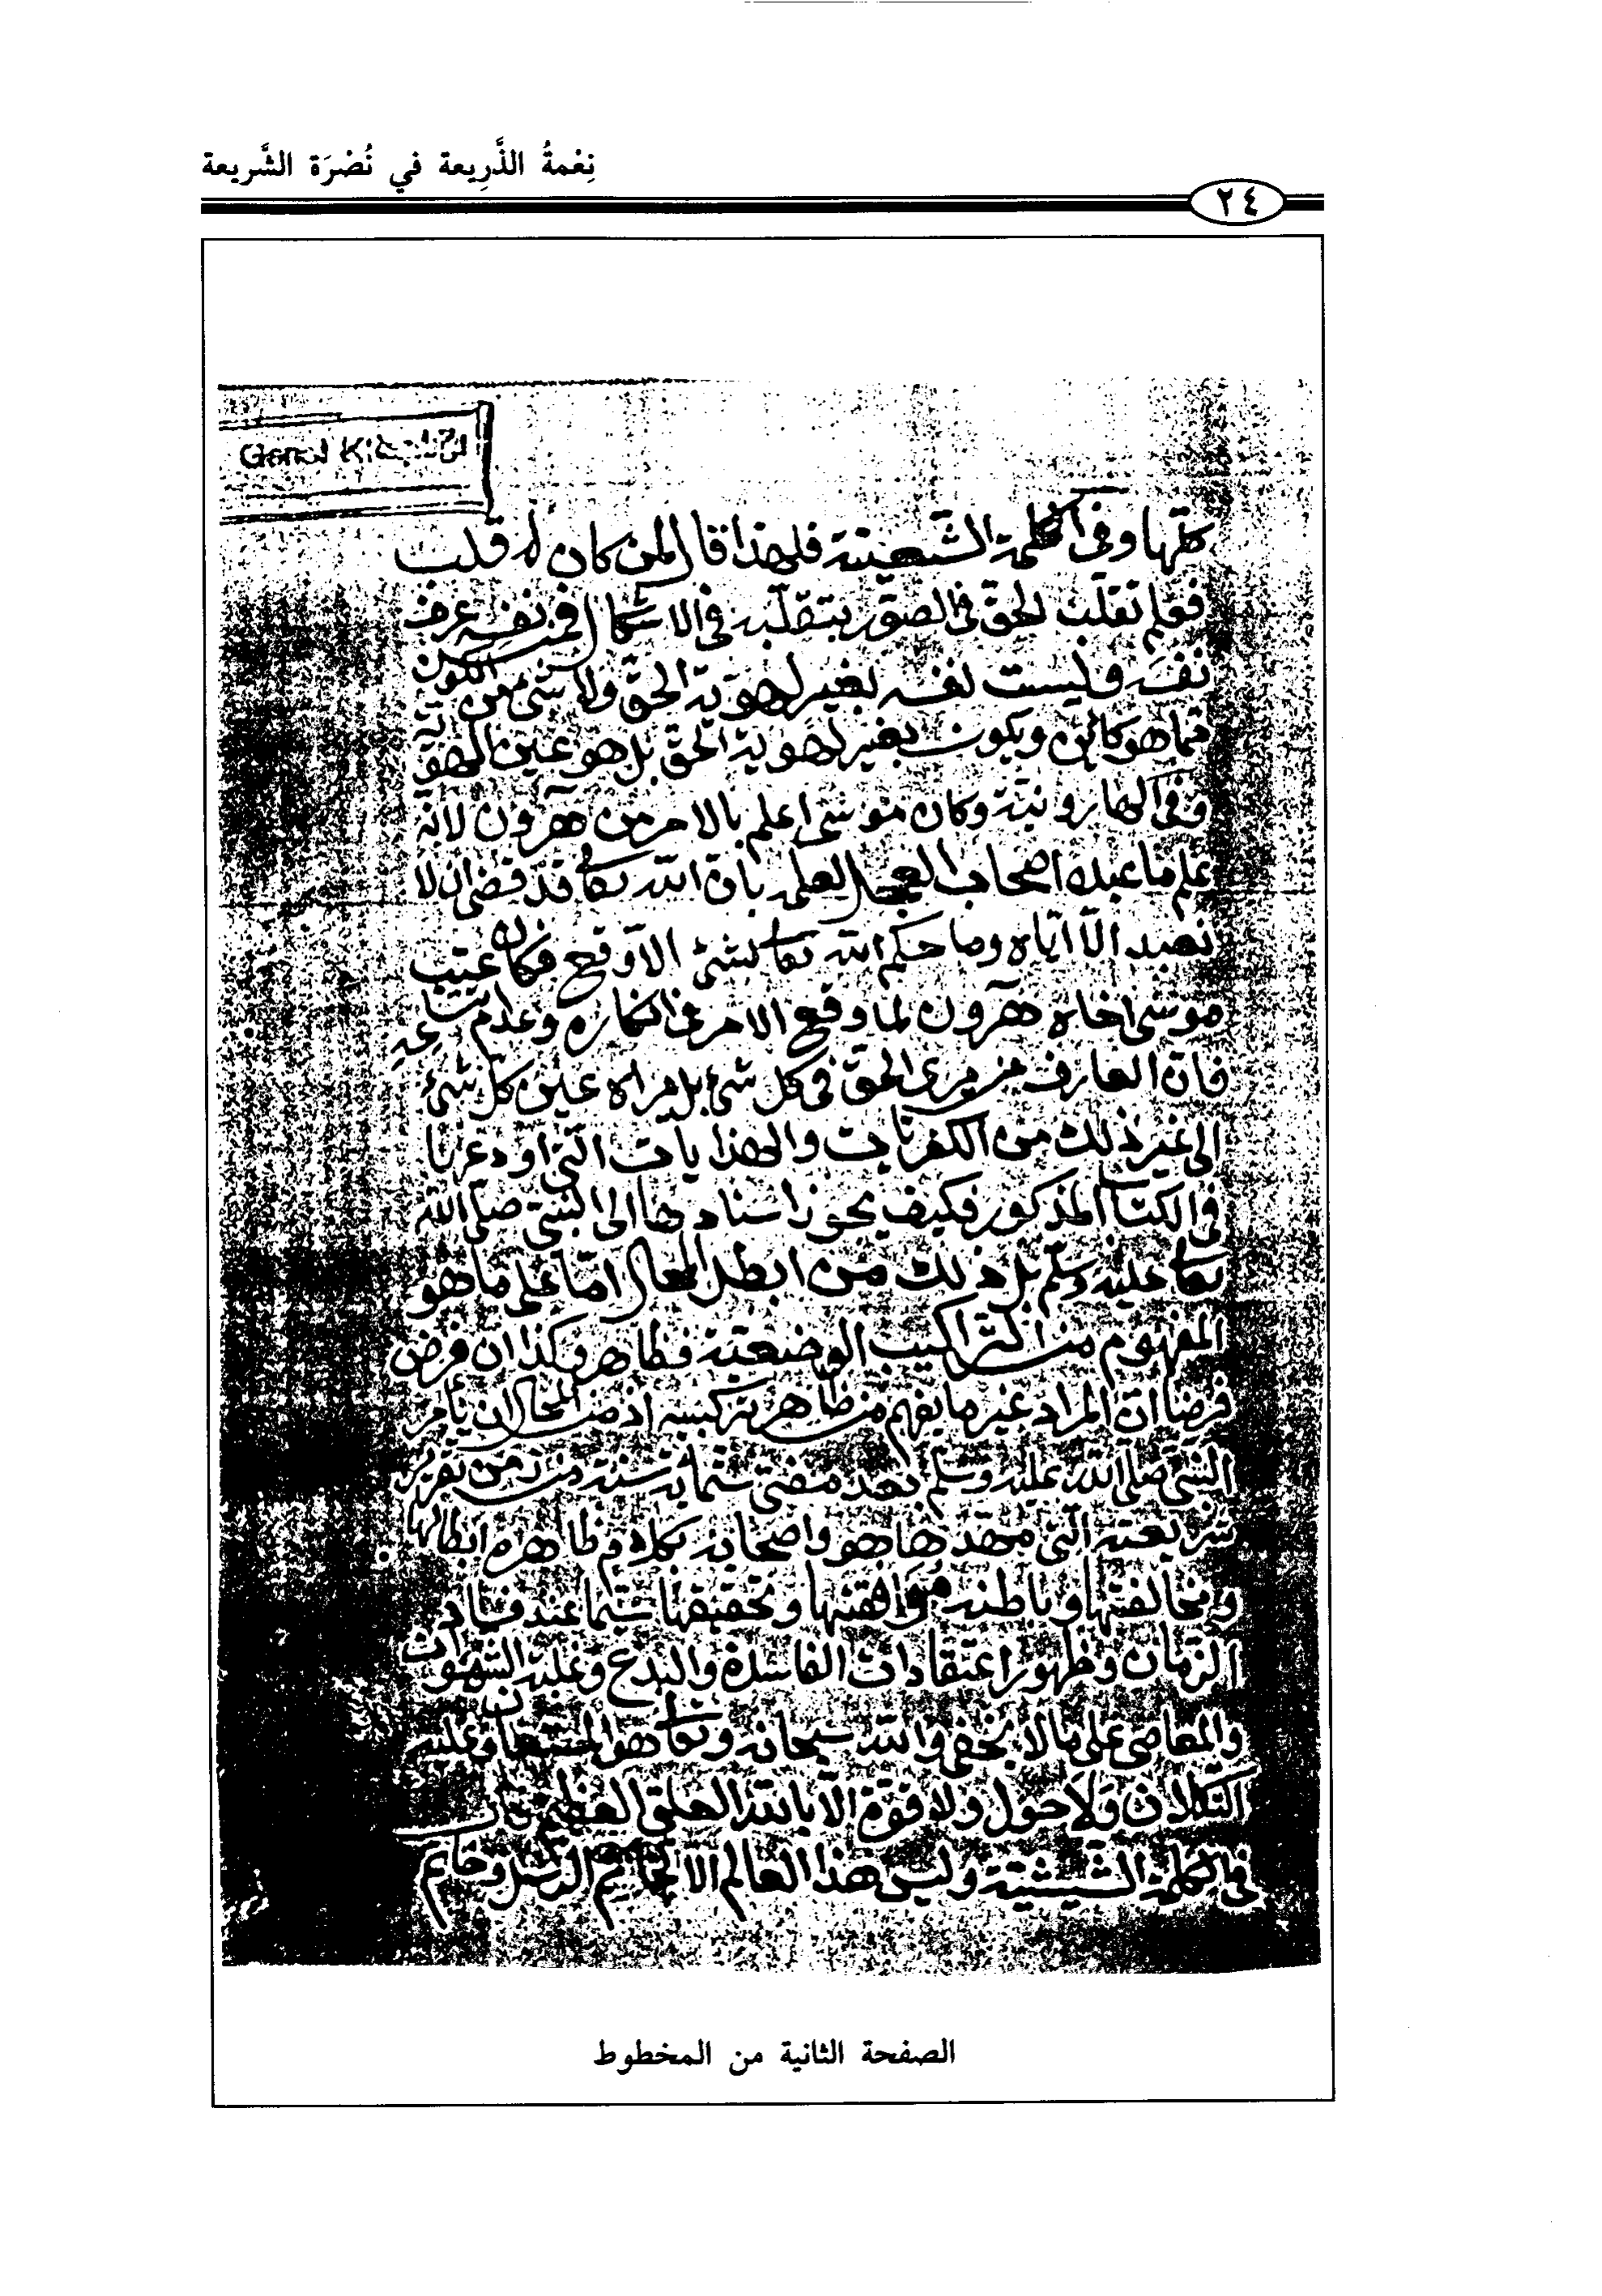 نِعْمةُ الذَّرِيعة في نُصْرَة الشَّريعة
٢٤
Genel
كلها وفي الكلمة الشعيبية فلهذا قال لمن كان له قلب
فعلم تقلب الحق في الصور بتقلبه في الاشكال فمن نفسه عرف
نفسه وليست نفسه بغير لهوية الحق ولا شئ من الكون
مما هو كائن ويكون بغير لهوية الحق بل هو عين الهوية
وفي الهارونية وكان موسى اعلم بالامر من هرون لانه
علم ما عبده اصحاب العجل لعلمه بان الله تعا قد قضى ان لا
نعبد الا اياه وما حكم الله تعا بشئ الا وقع فكان عتب
موسى اخاه هرون لما وقع الامر في انكاره وعدم اتساعه
فان العارف من يرى الحق في كل شئ بل يراه عين كل شئ
الى غير ذلك من الكفريات والهذايات التي اودعها
في الكتاب المذكور فكيف يجوز اسنادها الى النبي صلى الله
تعا عليه وسلم بل ذلك من ابطل المحال اما على ما هو
المفهوم من التراكيب الوضعية فظاهر وكذا ان فرض
فرضا ان المراد غير ما يفهم من ظاهر تركيبه اذ من المحال ان يأمر
النبي صلى الله عليه وسلم بعد مضي ستمائة سنة من زمن تقرير
شريعته التي مهدها هو واصحابه بكلام ظاهره ابطالها
ومخالفتها وباطنه موافقتها وتحقيقها سيما عند فساد
الزمان وظهور اعتقادات الفاسدة والبدع وغلبة الشهوات
والمعاصي على ما لا يخفى والله سبحانه وتعا هو المستعان وعليه
التكلان ولا حول ولا قوة الا بالله العلي العظيم
في الكلمة الشيثية وليس هذا العالم الا لخاتم الرسل وخاتم
الصفحة الثانية من المخطوط